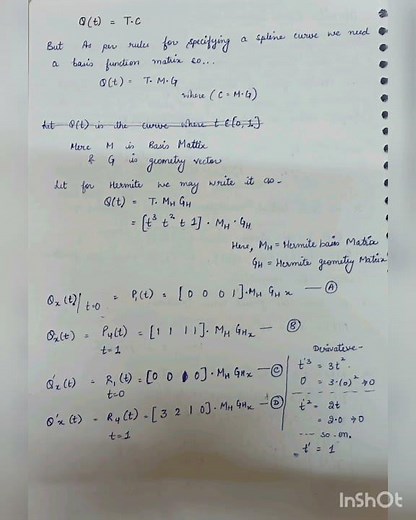 Q(t) = T·C
But As per rules for specifying a spline curve we need
a basis function matrix so...
Q(t) = T·M·G
where (C = M·G)
Let Q(t) is the curve where t ∈ [0,1]
Here M is Basis Matrix
& G is geometry vector
Let for Hermite we may write it as-
Q(t) = T·M_H G_H
= [t³ t² t 1]·M_H·G_H
Here, M_H = Hermite basis Matrix
G_H = Hermite geometry Matrix
Q_x(t)/t=0 = P₁(t) = [0 0 0 1]·M_H G_Hx — Ⓐ
Q_x(t) = P₄(t) = [1 1 1 1]·M_H G_Hx — Ⓑ
t=1
Q'_x(t) = R₁(t) = [0 0 1 0]·M_H G_Hx — Ⓒ
t=0
Q'_x(t) = R₄(t) = [3 2 1 0]·M_H G_Hx — Ⓓ
t=1
Derivative-
t'³ = 3t²
0 = 3·(0)² ⇒ 0
t'² = 2t
= 2·0 ⇒ 0
--- so on.
= t' = 1
InShOt